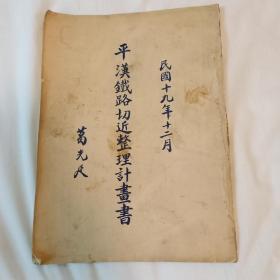 民國十九年十二月
平漢鐵路切近整理計畫書
葛光廷